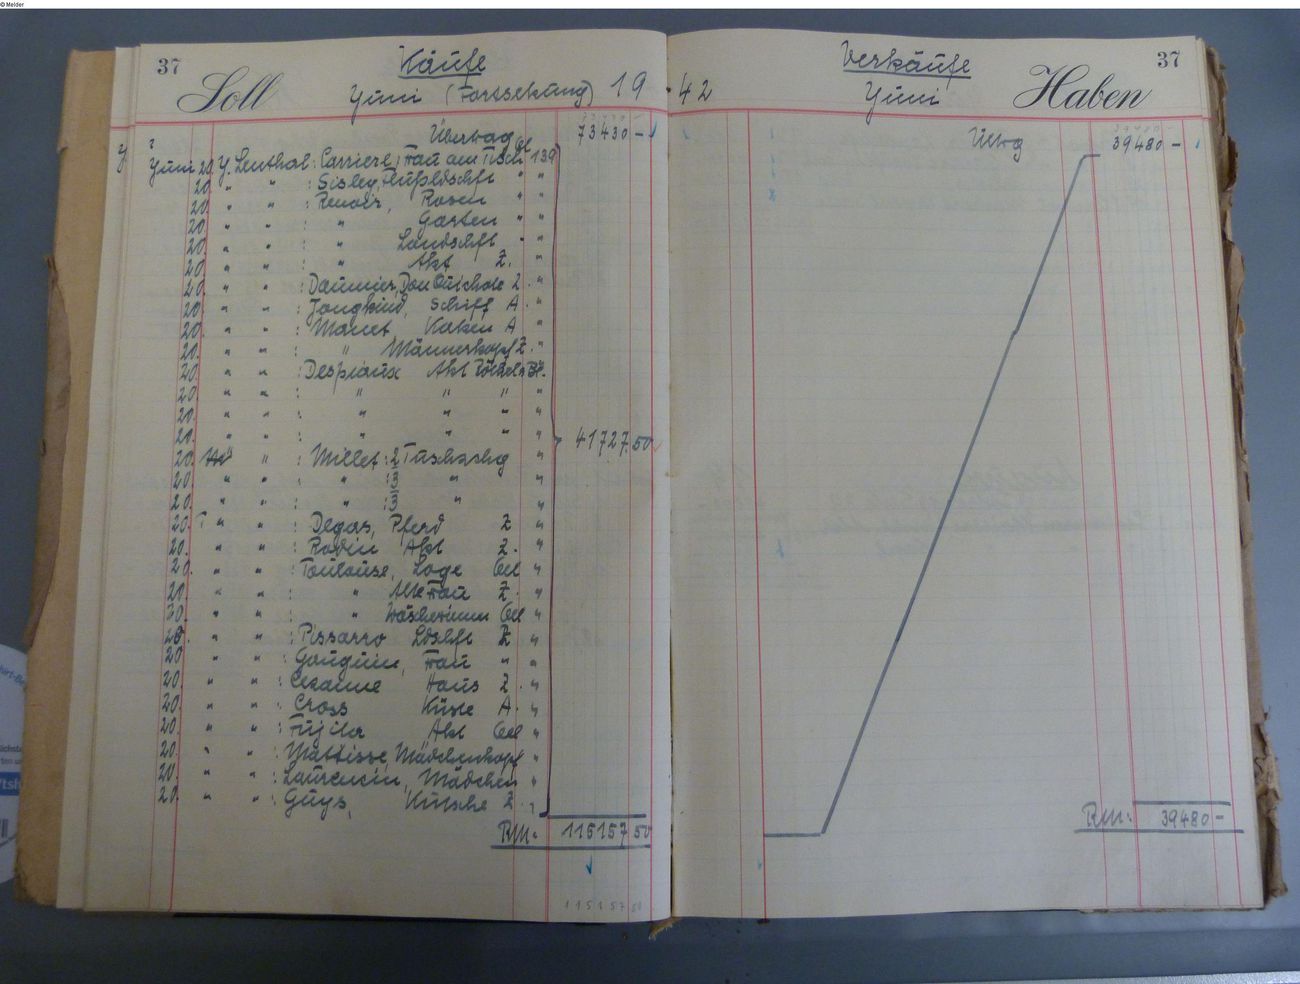 © Melder
37 Käufe
Soll Juni (Fortsetzung) 19
Übertrag 73430 -
Juni 20. Y. Lenthal: Carriere, Frau am Tisch Öl 139
20. " " : Sisley, Flußldschft " "
20. " " : Renoir, Rosen " "
20. " " : " Garten " "
20. " " : " Landschft " "
20. " " : " Akt Z. "
20. " " : Daumier, Don Quichote Z. "
20. " " : Jongkind, Schiff A. "
20. " " : Manet, Katzen A "
20. " " : " Männerkopf Z. "
20. " " : Despiaux Akt Rötel "
20. " " : " " " "
20. " " : " " " "
20. " " : " " " " 41727.50
20. " " : Millet: 2 Tuschzchg "
20. " " : " : 3 " "
20. " " : " : 3 " "
20. " " : Degas, Pferd Z "
20. " " : Rodin Akt Z. "
20. " " : Toulouse, Loge Oel "
20. " " : " Alte Frau Z. "
20. " " : " Wäscherinnen Oel "
20. " " : Pissarro Ldschft Z "
20. " " : Gauguin, Frau " "
20. " " : Cezanne Haus Z. "
20. " " : Cross Küste A. "
20. " " : Fujita Akt Oel "
20. " " : Matisse, Mädchenkopf "
20. " " : Laurencin, Mädchen "
20. " " : Guys, Kutsche Z. "
RM. 115157 50
115157 50
Verkäufe 37
42 Juni Haben
Übtrg 39480 -
RM. 39480 -